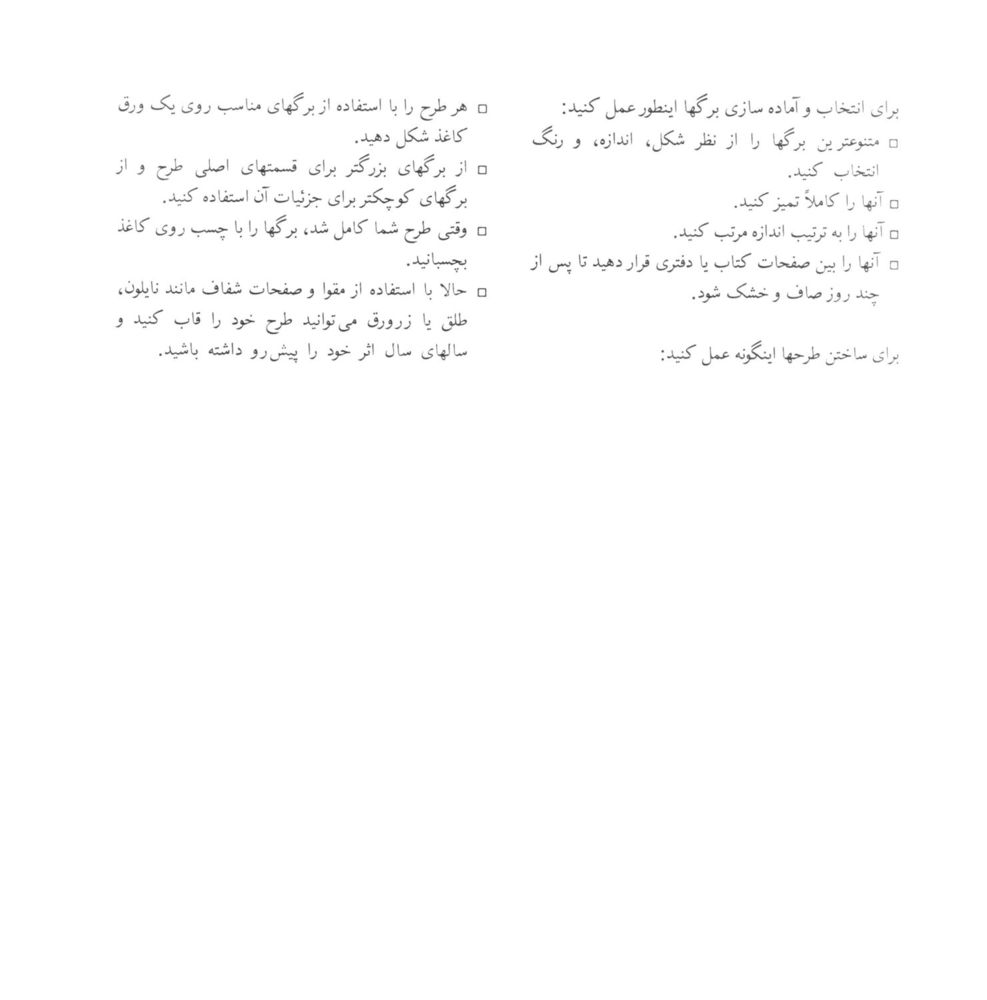 برای انتخاب و آماده سازی برگها اینطور عمل کنید:
□ متنوعترین برگها را از نظر شکل، اندازه، و رنگ
انتخاب کنید.
□ آنها را کاملاً تمیز کنید.
□ آنها را به ترتیب اندازه مرتب کنید.
□ آنها را بین صفحات کتاب یا دفتری قرار دهید تا پس از
چند روز صاف و خشک شود.
برای ساختن طرحها اینگونه عمل کنید:
□ هر طرح را با استفاده از برگهای مناسب روی یک ورق
کاغذ شکل دهید.
□ از برگهای بزرگتر برای قسمتهای اصلی طرح و از
برگهای کوچکتر برای جزئیات آن استفاده کنید.
□ وقتی طرح شما کامل شد، برگها را با چسب روی کاغذ
بچسبانید.
□ حالا با استفاده از مقوا و صفحات شفاف مانند نایلون،
طلق یا زرورق می‌توانید طرح خود را قاب کنید و
سالهای سال اثر خود را پیش‌رو داشته باشید.